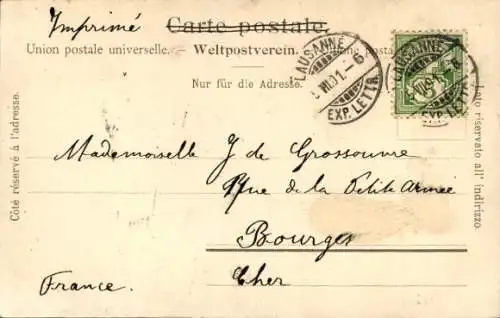 Imprimé
Carte postale.
Union postale universelle. — Weltpostverein. — Unione postale
Nur für die Adresse.
Côté réservé à l'adresse.
Lato riservato all' indirizzo.
LAUSANNE
VII.01.–6
EXP. LETTR.
LAUSANNE
EXP. LETTR.
Mademoiselle J de Grossouvre
Rue de la Petite Armée
Bourges
Cher
France.